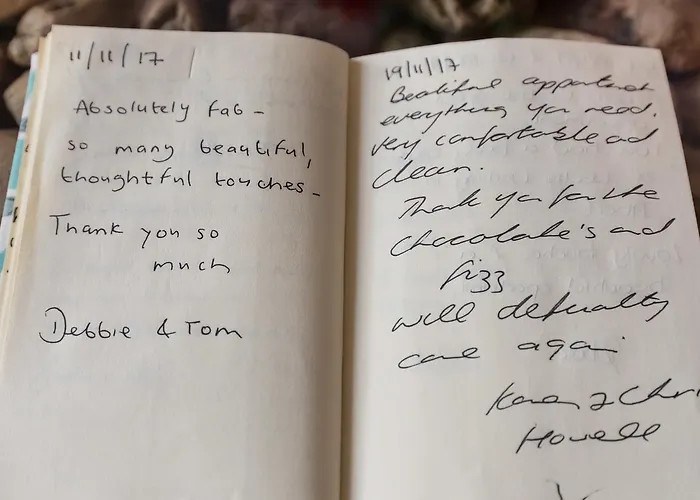 11/11/17
Absolutely fab -
so many beautiful,
thoughtful touches -
Thank you so
much
Debbie & Tom
19/11/17
everything you need.
very comfortable and
clean.
Thank you for the
chocolate's and
fizz
will defnatly
come again
Karen & Chri
Howell